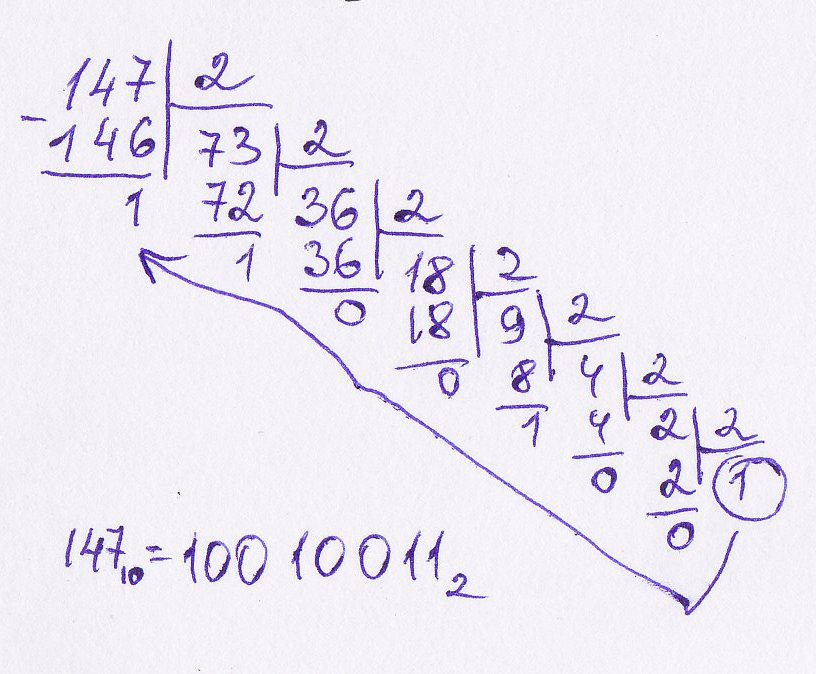 147 2
- 146 73 2
1 72 36 2
1 36 18 2
0 18 9 2
0 8 4 2
1 4 2 2
0 2 1
0
147₁₀ = 10010011₂